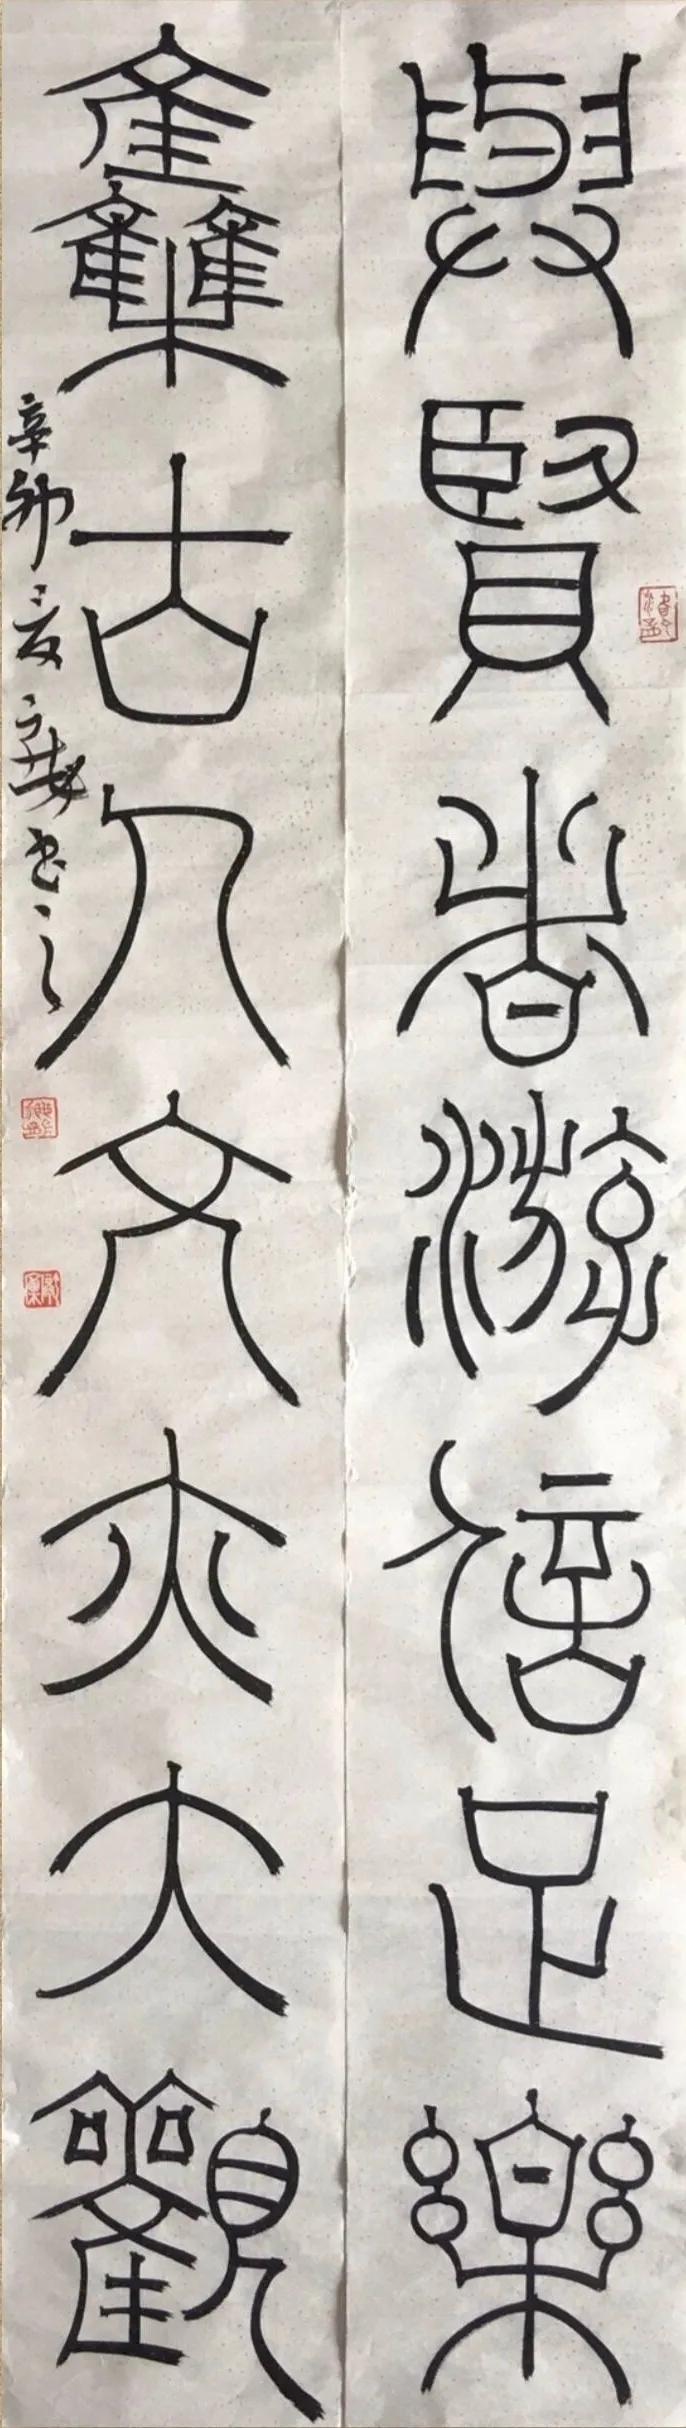 與賢者游信足樂
集古人文亦大觀
辛卯夏
書之